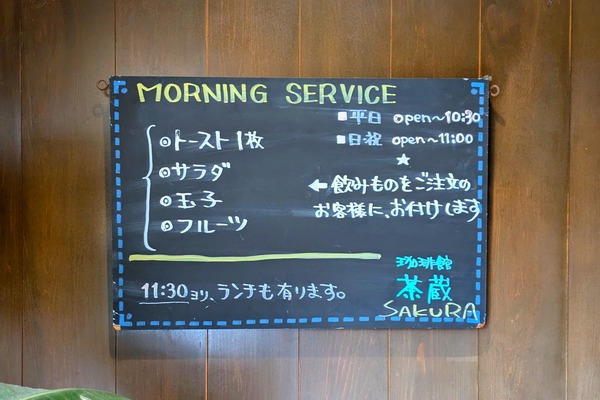 MORNING SERVICE
■平日 open~10:30
■日・祝 open~11:00
★
◎トースト1枚
◎サラダ
◎玉子
◎フルーツ
←飲みものをご注文の
お客様に、お付けします
11:30ヨリ、ランチも有ります。
珈琲館
茶蔵
SAKURA